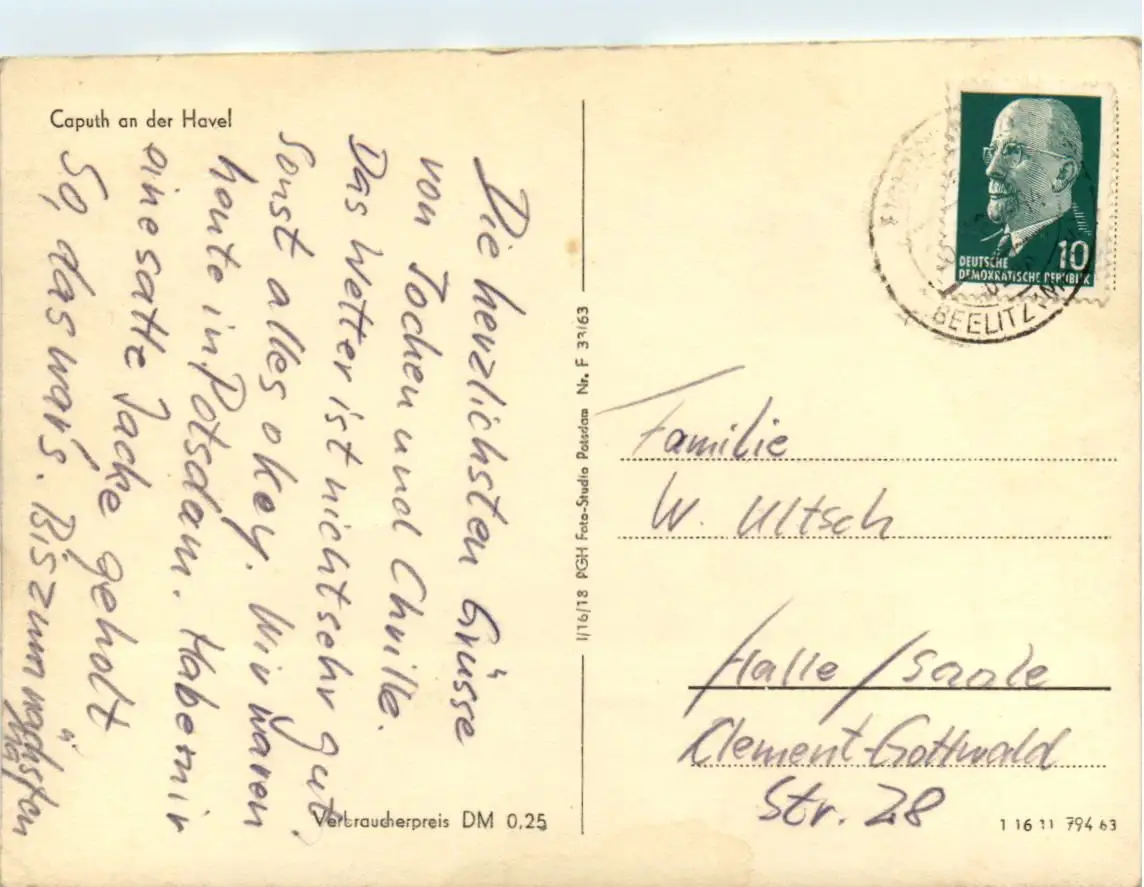 Caputh an der Havel
Die herzlichsten Grüsse
von Jochen und Chrille.
Das Wetter ist nicht sehr gut
sonst alles okey. Wir waren
heute in Potsdam. Habe mir
eine satte Jacke geholt
So, das wär's. Bis zum nächsten
Verbraucherpreis DM 0,25
I/16/18 PGH Foto-Studio Potsdam Nr. F 33/63
DEUTSCHE
DEMOKRATISCHE REPUBLIK
10
BEELITZ
Familie
W. Ultsch
Halle/Saale
Clement-Gottwald
Str. 28
1 16 11 794 63